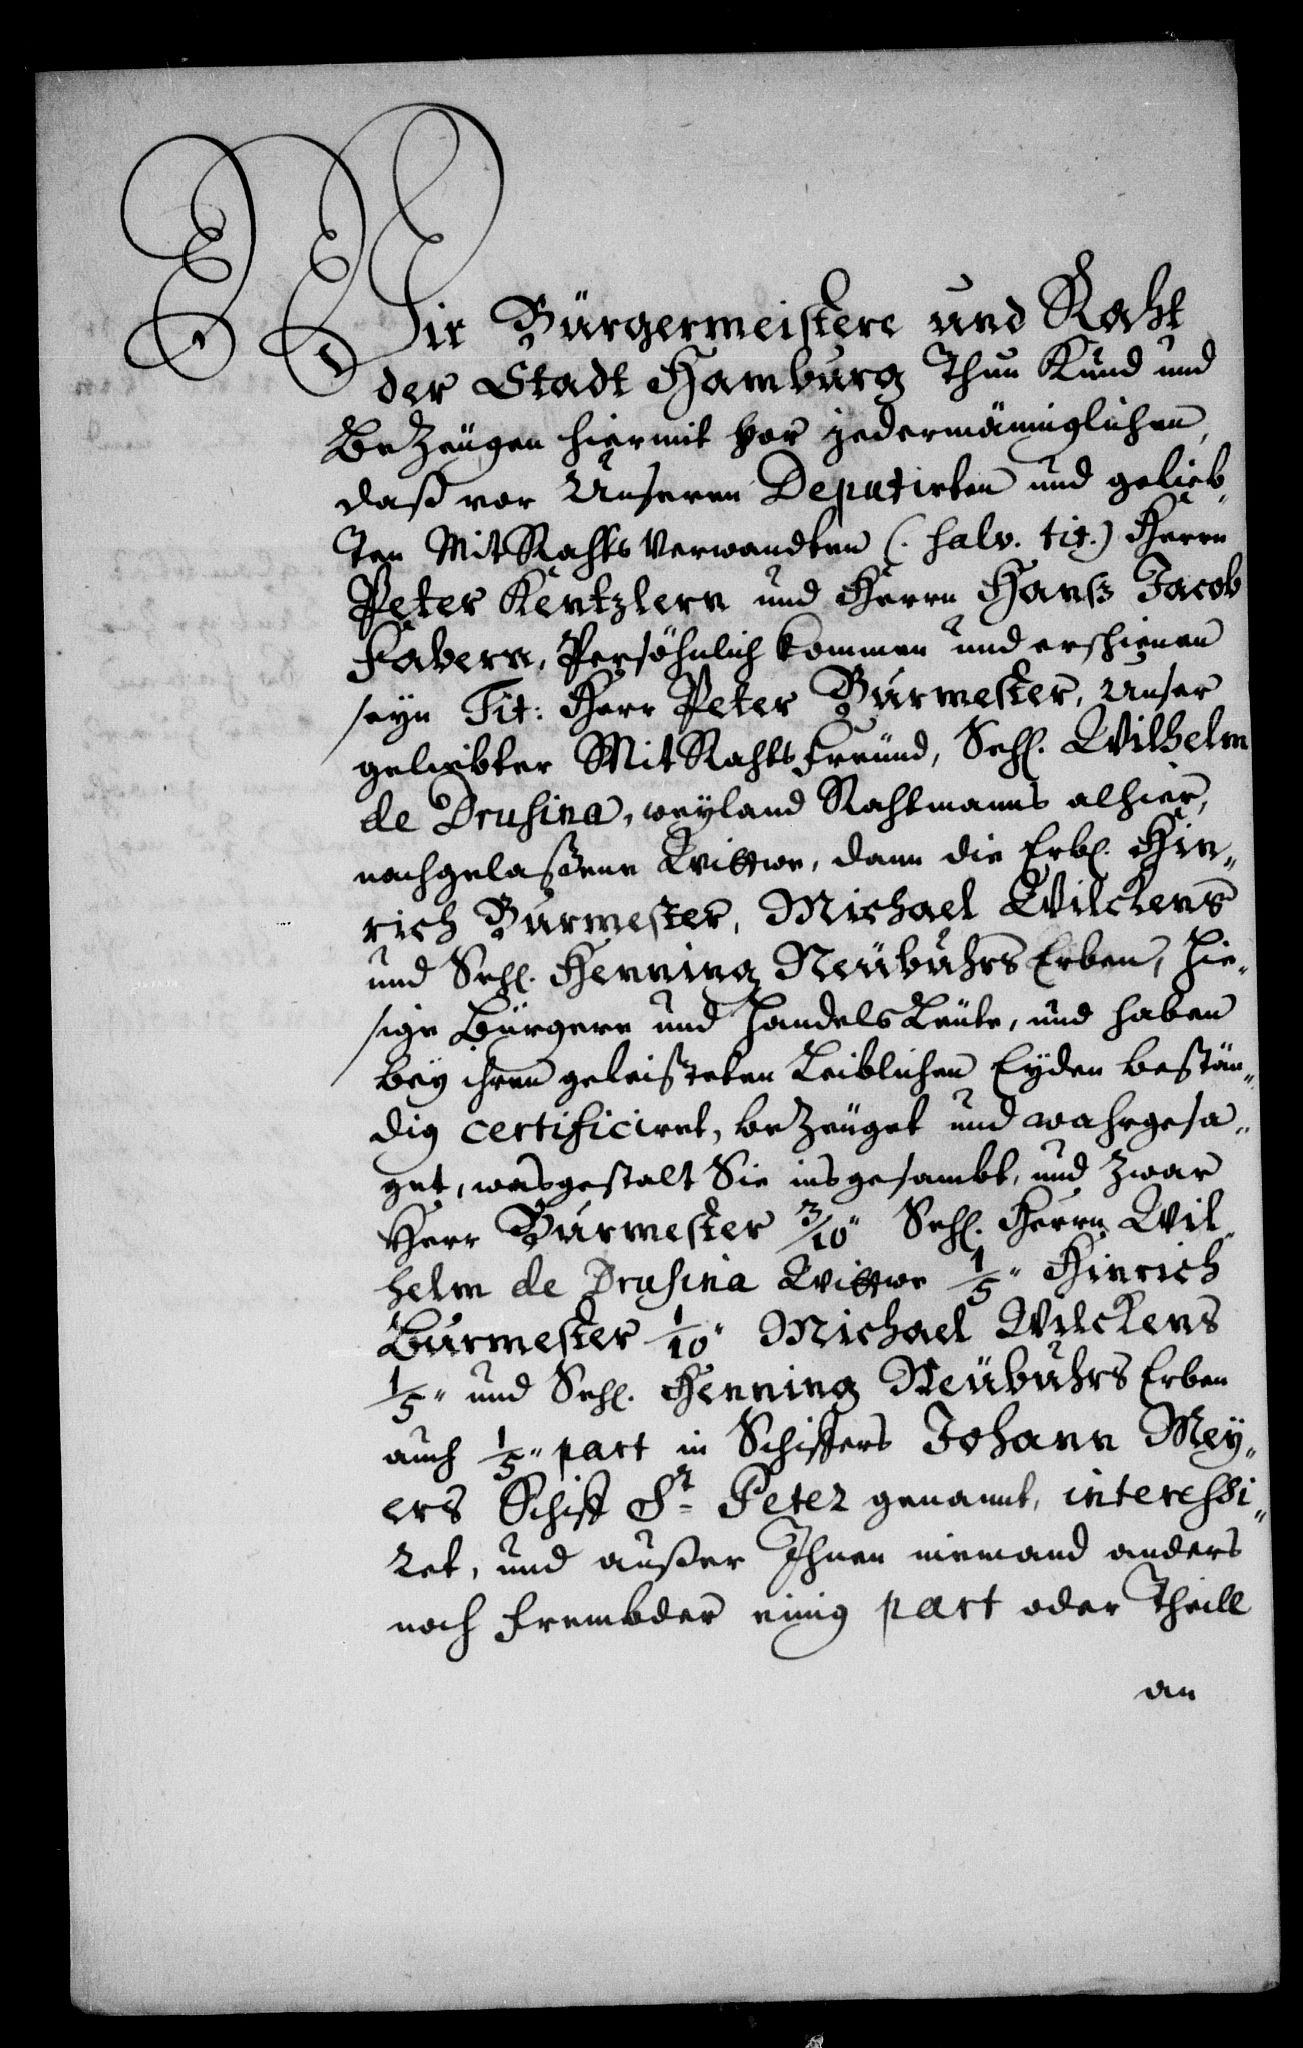 Wir Bürgermeistere und Raht
der Stadt Hamburg Thun Kund und
BeZeugen hiermit vor jedermänniglichen,
daß vor Unseren Deputirten und gelieb„
ten MitRahtsVerwandten (. salv. tit.) Herrn
Peter Kentzlern und Herrn Hanß Jacob
Fabern, Persöhnlich kommen und erschienen
seyn Tit: Herr Peter Burmester, Unser
geliebter MitRahtsfreund, Sehl. Wilhelm
de Drusina, weyland Rahtmanns alhier,
nachgelaßene Wittwe, dann die Erb. Hin„
rich Burmester, Michael Wilckens
und Sehl. Henning Neübuhrs Erben, hie„
sige Bürgere und Handels Leute, und haben
bey ihren geleisteten Leiblichen Eyden bestän„
dig certificiret, beZeuget und wahrgesa„
get, wasgestalt Sie insgesambt, und Zwar
Herr Burmester 3/10" Sehl. Herrn Wil„
helm de Drusina Wittwe 1/5" Hinrich
Burmester 1/10" Michael Wilckens
1/5" und Sehl. Henning Neübuhrs Erben
auch 1/5" part in Schiffers Johann Mey„
ers Schiff St Peter genannt, interessi„
ret, und außer Ihnen niemand anders
noch frembder einig part oder Theill
an